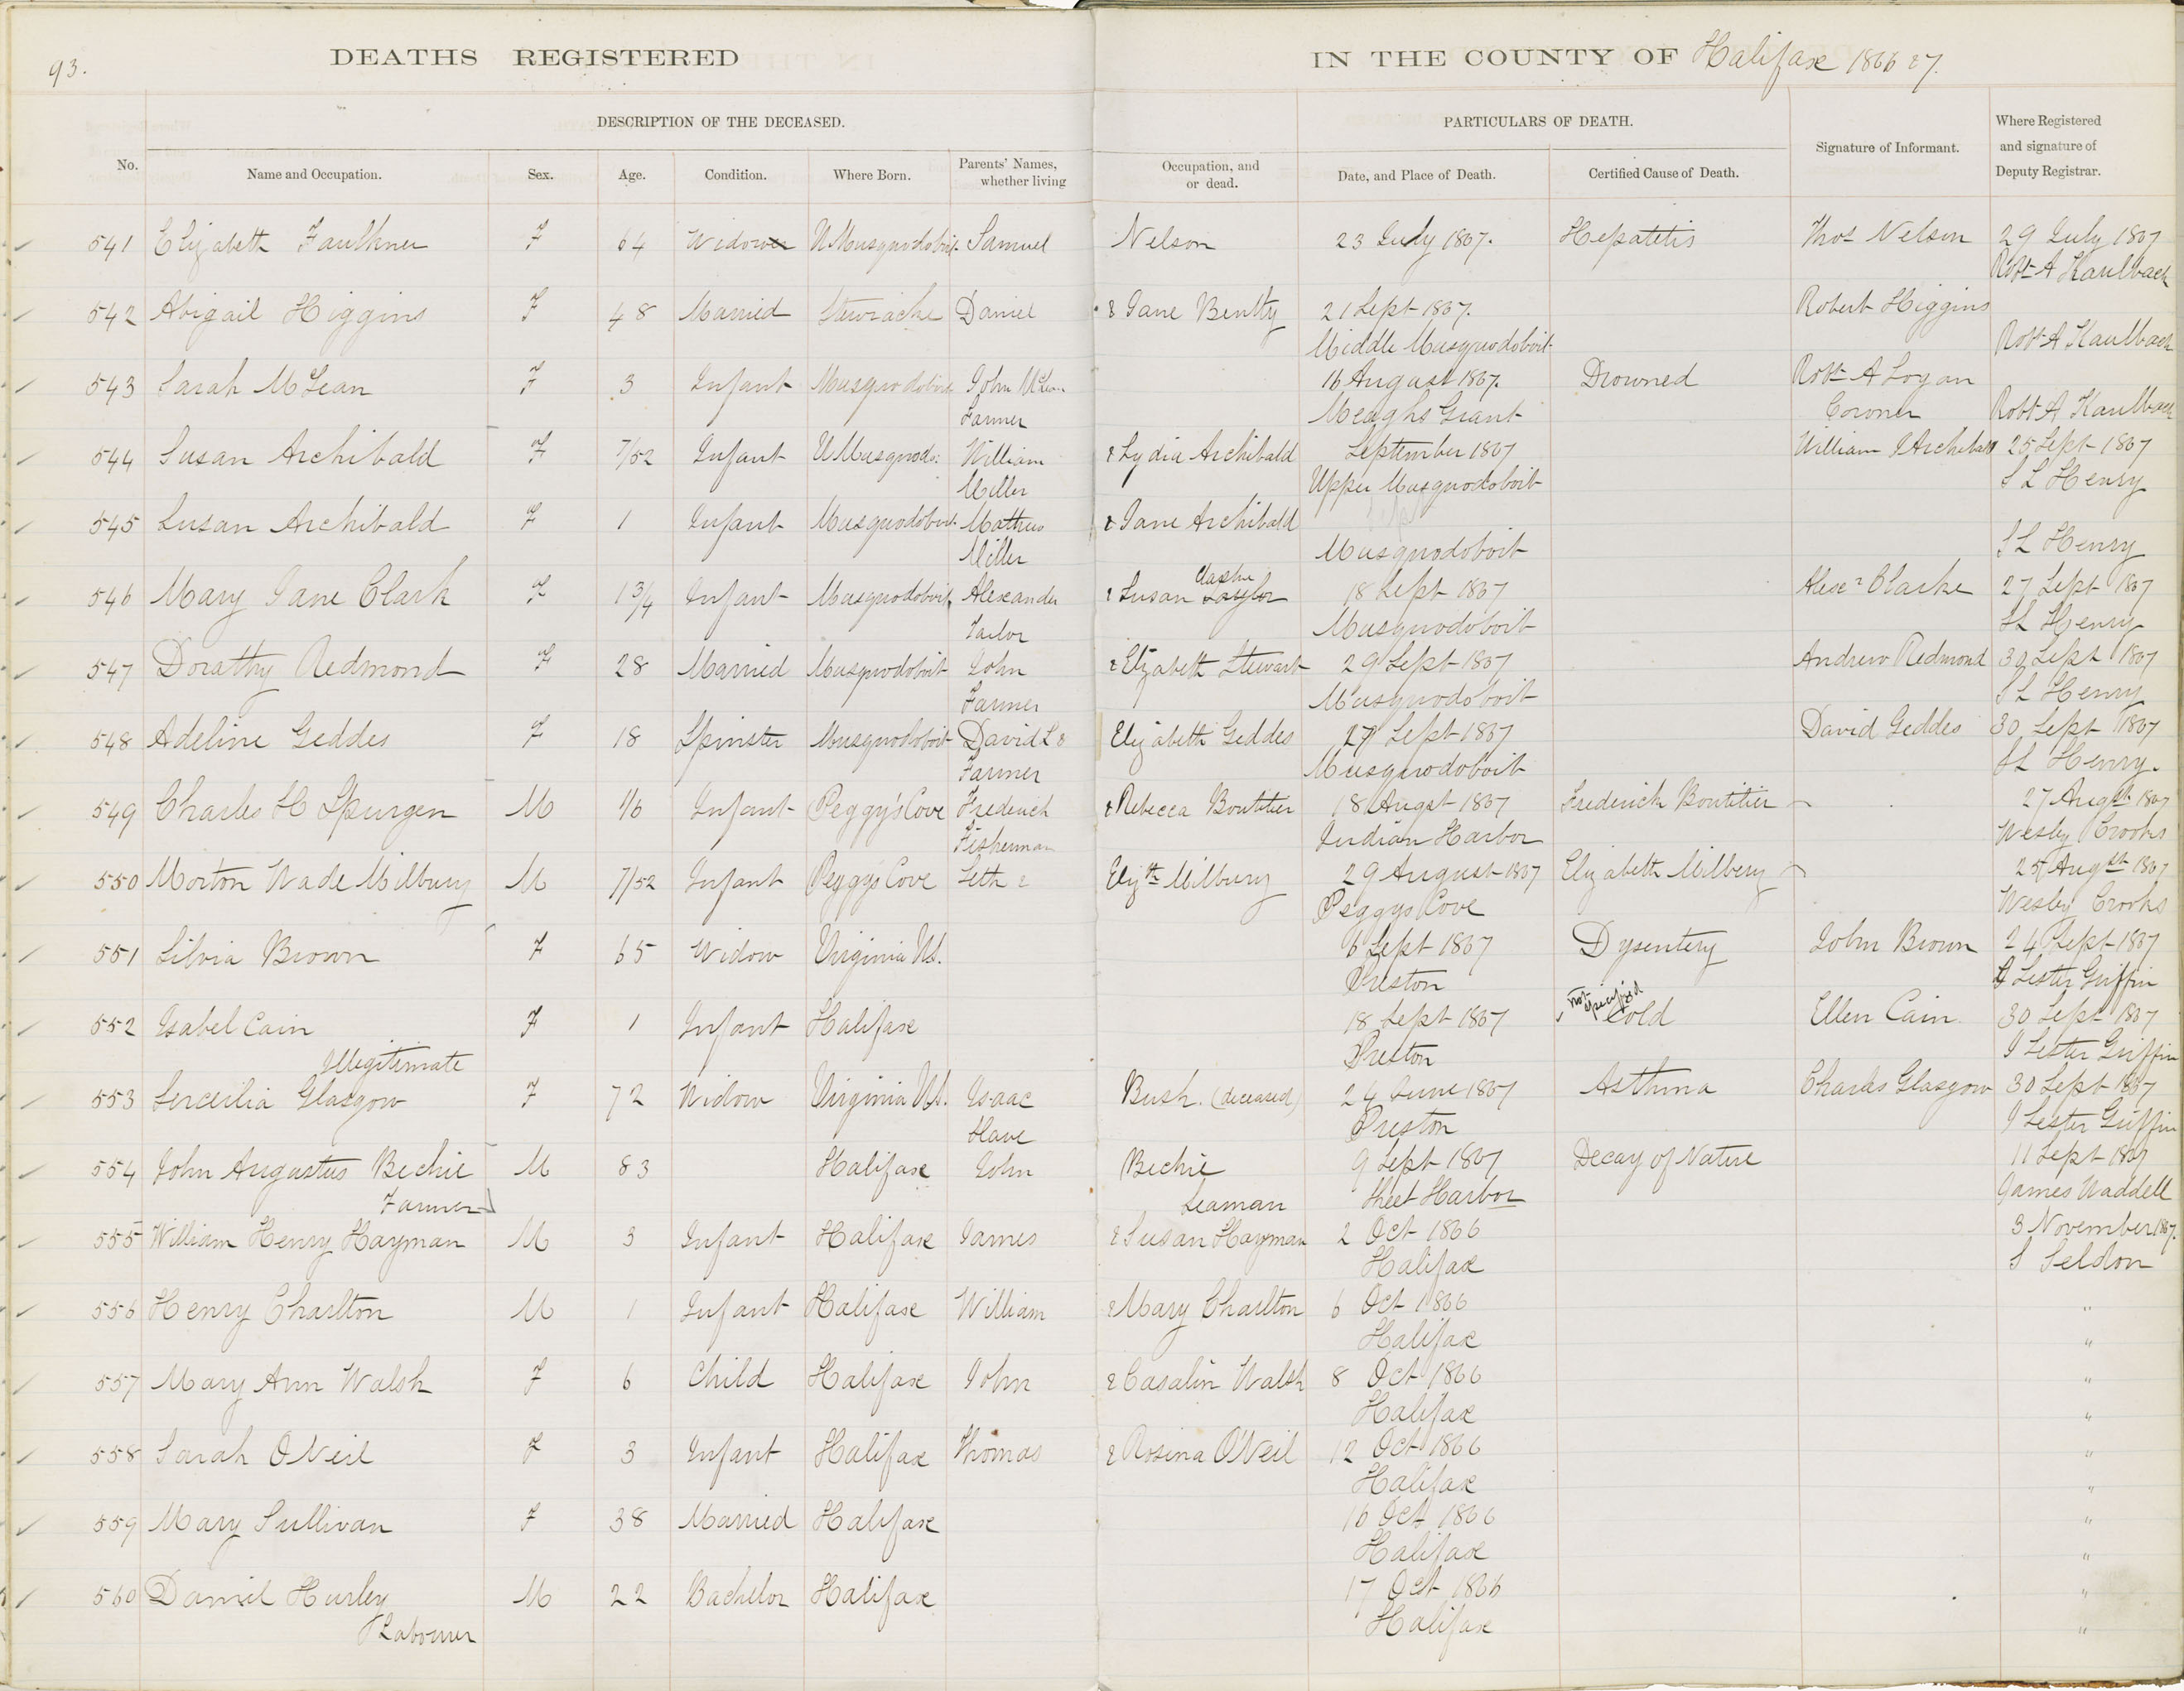 93.
DEATHS REGISTERED IN THE COUNTY OF Halifax 1866 & 7.
DESCRIPTION OF THE DECEASED. PARTICULARS OF DEATH.
No. Name and Occupation. Sex. Age. Condition. Where Born. Parents' Names, whether living Occupation, and or dead. Date, and Place of Death. Certified Cause of Death. Signature of Informant. Where Registered and signature of Deputy Registrar.
541 Elizabeth Faulkner F 64 Widow U Musquodoboit Samuel Nelson 23 July 1867. Hepatitis Thos Nelson 29 July 1867
Robt A Kaulback
542 Abigail Higgins F 48 Married Stewiacke Daniel & Jane Bentty 21 Sept 1867. Robert Higgins
Middle Musquodoboit Robt A Kaulback
543 Sarah McLean F 3 Infant Musquodoboit John McLean 16 August 1867. Drowned Robt A Logan
Farmer Meaghs Grant Coroner Robt A Kaulback
544 Susan Archibald F 7/52 Infant U Musquod: William & Lydia Archibald September 1867 William J Archibald 25 Sept 1867
Miller Upper Musquodoboit S L Henry
545 Susan Archibald F 1 Infant Musquodoboit Mathew & Jane Archibald
Miller Musquodoboit S L Henry
546 Mary Jane Clark F 1 3/4 Infant Musquodoboit Alexander & Susan Taylor 18 Sept 1867 Alexr Clarke 27 Sept 1867
Tailor Musquodoboit S L Henry
547 Dorathy Redmond F 28 Married Musquodoboit John & Elizabeth Stewart 29 Sept 1867 Andrew Redmond 30 Sept 1867
Farmer Musquodoboit S L Henry
548 Adeline Geddes F 18 Spinster Musquodoboit David L & Elizabeth Geddes 27 Sept 1867 David Geddes 30 Sept 1867
Farmer Musquodoboit S L Henry.
549 Charles H Spurgen M 1/6 Infant Peggy's Cove Frederick & Rebecca Boutilier 18 Augst 1867 Frederick Boutilier 27 Augst 1867
Fisherman Indian Harbor Wesley Crooks
550 Morton Wade Milbury M 7/52 Infant Peggys Cove Seth & Elizth Milbury 29 August 1867 Elizabeth Milbery 25 Augst 1867
Peggys Cove Wesley Crooks
551 Silvia Brown F 65 Widow Virginia US. 6 Sept 1867 Dysentery John Brown 24 Sept 1867
Preston J Lester Griffin
552 Isabel Cain F 1 Infant Halifax 18 Sept 1867 not specified Cold Ellen Cain 30 Sept 1867
Illegitimate Preston J Lester Griffin
553 Serceilia Glasgow F 72 Widow Virginia US. Isaac Bush. (deceased) 24 June 1867 Asthma Charles Glasgow 30 Sept 1867
Slave Preston J Lester Griffin
554 John Augustus Bechie M 83 Halifax John Bechie 9 Sept 1867 Decay of Nature 11 Sept 1867
Farmer Seaman Sheet Harbor James Waddell
555 William Henry Hayman M 3 Infant Halifax James & Susan Hayman 2 Oct 1866 3 November 1867.
Halifax S Seldon
556 Henry Charlton M 1 Infant Halifax William & Mary Charlton 6 Oct 1866 "
Halifax "
557 Mary Ann Walsh F 6 Child Halifax John & Casalin Walsh 8 Oct 1866 "
Halifax "
558 Sarah ONeil F 3 Infant Halifax Thomas & Rosina O'Neil 12 Oct 1866 "
Halifax "
559 Mary Sullivan F 38 Married Halifax 16 Oct 1866 "
Halifax "
560 Daniel Hurley M 22 Bachelor Halifax 17 Oct 1866 "
Labourer Halifax "